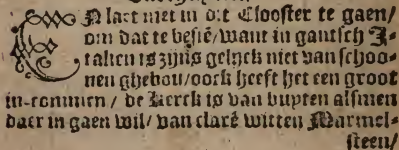 EN laet niet in dit Clooster te gaen/
om dat te besiẽ/ want in gantsch J-
talien is zijns gelijck niet van schoo-
nen ghebou/ oock heeft het een groot
in-commen / de Kerck is van buyten alsmen
daer in gaen wil/ van clarẽ witten Marmel-
steen/